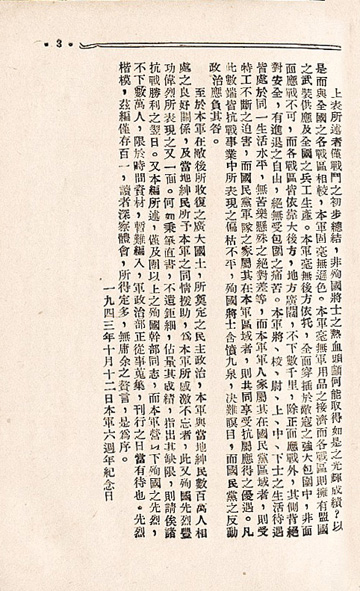 • 3 •
上表所述者僅戰鬥之初步總結，非殉國將士之熱血頭顱何能取得如是之光輝成績？以
是而與全國之各戰區相較，本軍固毫無遜色。本軍毫無軍用品之接濟而各戰區則擁有盟國
之武裝供應及全國之兵工生產。本軍毫無後方依托，全面穿插於敵寇之強大包圍中，非面
面應戰不可，而各戰區皆依靠大後方，地方廣闊，不下數千里，除正面應戰外，其側背絕
對安全，有進退之自由，絕無受包圍之痛苦。本軍將、校、尉、上、中、下士之生活待遇
皆處於同一生活水平，無苦樂懸殊之絕對差等，而本軍軍人家屬其在國民黨區域者，則受
特工不斷之迫害，而國民黨軍隊之家屬其在本軍區域者，則共同享受抗屬應得之優遇。凡
此數端皆抗戰事業中所表現之偏枯不平，殉國將士含憤九泉，決難瞑目，而國民黨之反動
政治應負其咎。
至於本軍在敵後所收復之廣大國土，所奠定之民主政治，本軍與當地紳民數百萬人相
處之良好關係，及當地紳民所予本軍之同情援助，為本軍所感激不忘者，此又殉國先烈豐
功偉烈所表現之又一面。何如秉筆直書，不遺鉅細，估量其成績，指出其缺限，則請俟諸
抗戰勝利之翌日。又本編所述，僅及團以上之殉國幹部同志，而本軍營以下殉國之先烈，
不下數萬人，限於時間資材，暫難編入，軍政治部正從事蒐集，刊行之日當有待也。先烈
楷模，茲編僅存百一，讀者深察體會，所得定多，無庸余之贅言，是為序。
一九四三年十月十二日本軍六週年紀念日